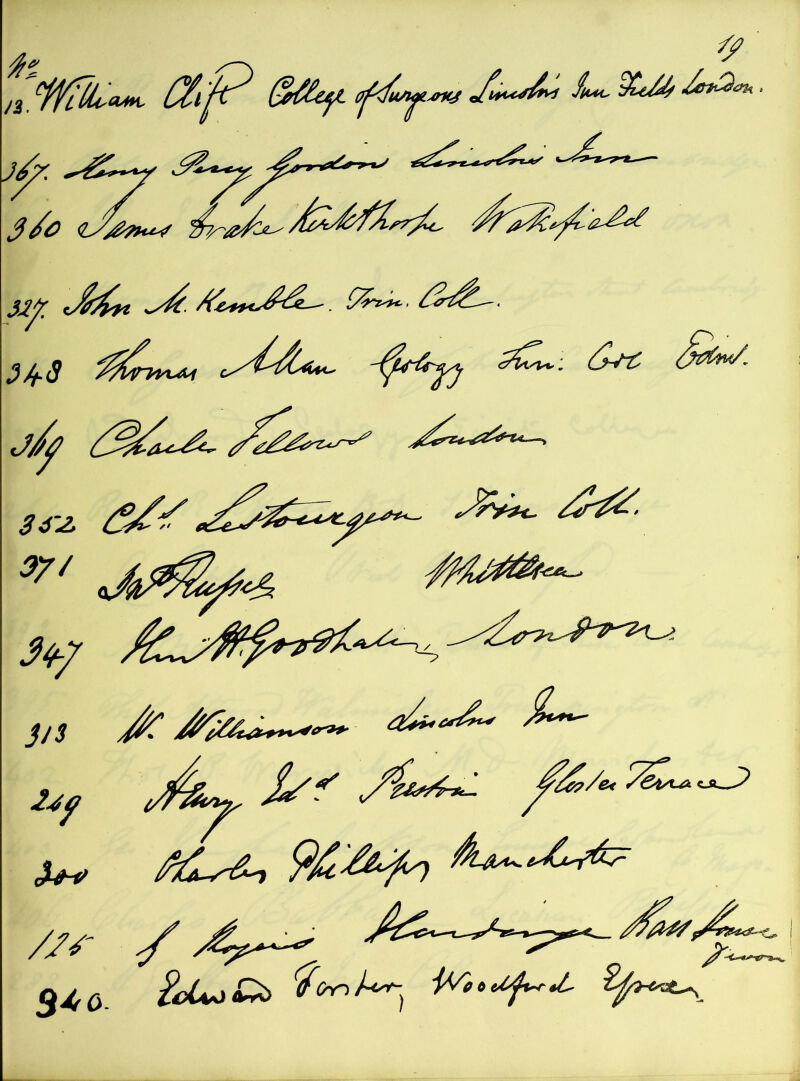 19
No
13. William Clift College of Surgeons Lincoln's Inn Fields London.
367. Henry Percy Gordon Lincolns Inn
360 James Drake Kirkthorpe Wakefield
327. John M. Kemble. Trin. Coll.
348 Thomas Allan Geology Edinr.
369 Charles Fellows London
352 Chs. Lestourgeon Trin Coll.
371 Whittlesea
347 London
313 W. Williamson Lincolns Inn
269 Henry Edd. Preston Gloster Terrace
300 Charles Phillips Manchester
125 Rogers House
Devon
340. Edward Forster, Woodford Essex